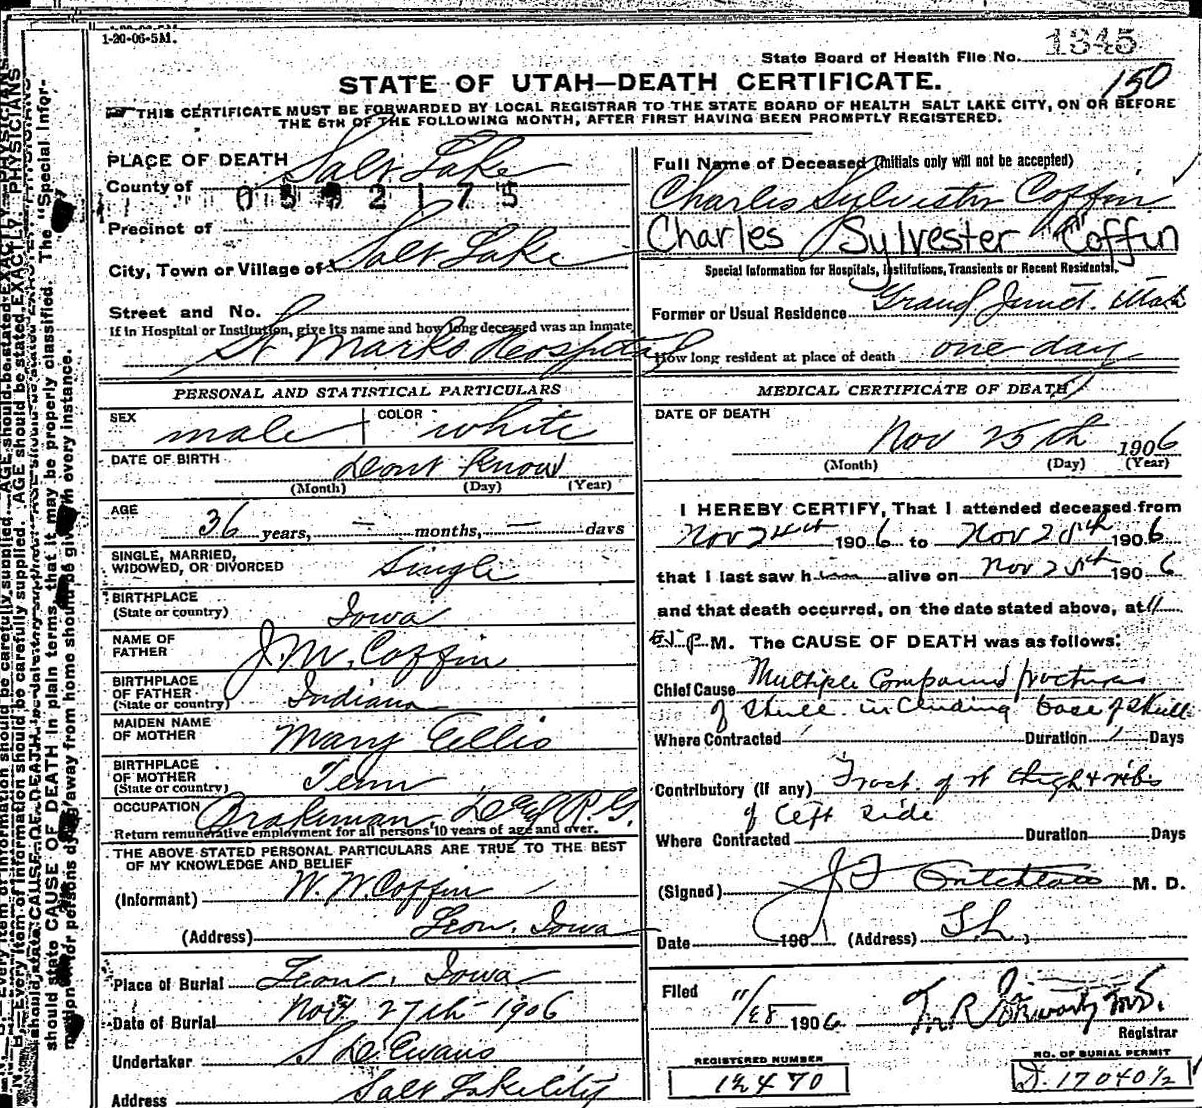 1-20-06-5M.
State Board of Health File No. 1345
150
STATE OF UTAH—DEATH CERTIFICATE.
THIS CERTIFICATE MUST BE FORWARDED BY LOCAL REGISTRAR TO THE STATE BOARD OF HEALTH SALT LAKE CITY, ON OR BEFORE
THE 5TH OF THE FOLLOWING MONTH, AFTER FIRST HAVING BEEN PROMPTLY REGISTERED.
PLACE OF DEATH
County of Salt Lake
0502175
Precinct of
City, Town or Village of Salt Lake
Street and No.
If in Hospital or Institution, give its name and how long deceased was an inmate
St Marks Hospital
PERSONAL AND STATISTICAL PARTICULARS
SEX male COLOR white
DATE OF BIRTH Dont Know
(Month) (Day) (Year)
AGE 36 years, — months, — days
SINGLE, MARRIED,
WIDOWED, OR DIVORCED Single
BIRTHPLACE
(State or country) Iowa
NAME OF
FATHER J. M. Coffin
BIRTHPLACE
OF FATHER
(State or country) Indiana
MAIDEN NAME
OF MOTHER Mary Ellis
BIRTHPLACE
OF MOTHER
(State or country) Tenn
OCCUPATION Brakeman. R. G.
Return remunerative employment for all persons 10 years of age and over.
THE ABOVE STATED PERSONAL PARTICULARS ARE TRUE TO THE BEST
OF MY KNOWLEDGE AND BELIEF
(Informant) W. W. Coffin
(Address) Leon, Iowa
Place of Burial Leon, Iowa
Date of Burial Nov. 27th 1906
Undertaker S D Evans
Address Salt Lake City
Full Name of Deceased (Initials only will not be accepted)
Charles Sylvester Coffin
Charles Sylvester Coffin
Special Information for Hospitals, Institutions, Transients or Recent Residents.
Former or Usual Residence Grand Junct. Utah
How long resident at place of death one day
MEDICAL CERTIFICATE OF DEATH
DATE OF DEATH
Nov 25th 1906
(Month) (Day) (Year)
I HEREBY CERTIFY, That I attended deceased from
Nov 24th 1906 to Nov 25th 1906
that I last saw him alive on Nov 25th 1906
and that death occurred, on the date stated above, at 11
P M. The CAUSE OF DEATH was as follows:
Chief Cause Multiple Compound fractures
of skull including base of skull
Where Contracted Duration 1 Days
Contributory (if any) Fract. of rt thigh & ribs
of left side
Where Contracted Duration Days
(Signed) J F M. D.
Date 190 (Address) S. L.
Filed 11/28 1906
Registrar
REGISTERED NUMBER
12470
NO. OF BURIAL PERMIT
D. 17040 1/2
should state CAUSE OF DEATH in plain terms, that it may be properly classified. The "Special Infor-
mation" for persons dying away from home should be given in every instance.